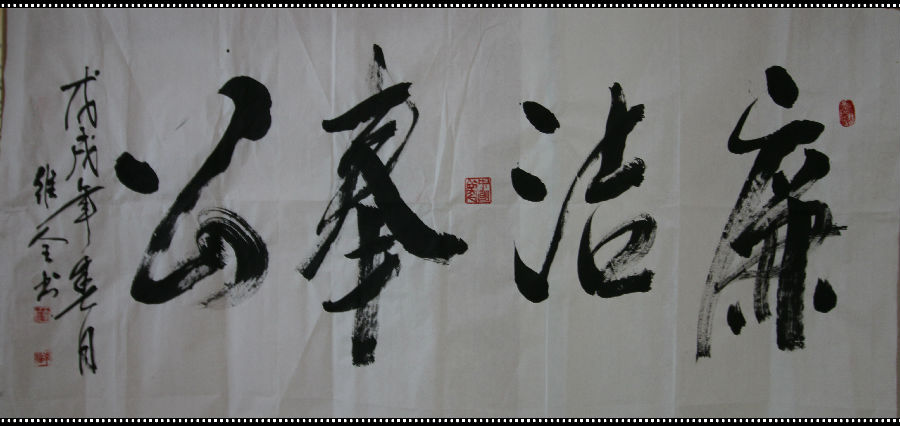 廉洁奉公
戊戌年春月
維全书